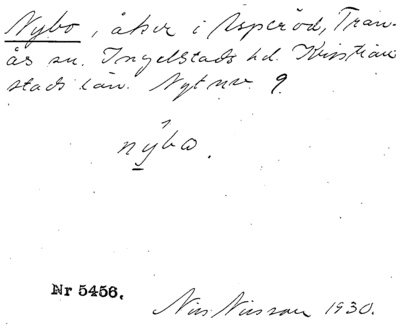 Nybo, åker i Asperöd, Tran-
ås sn. Ingelstads hd. Kristian
stads län. Nyt nr 9.
nybo.
Nr 5456.
Nils Nilsson 1930.